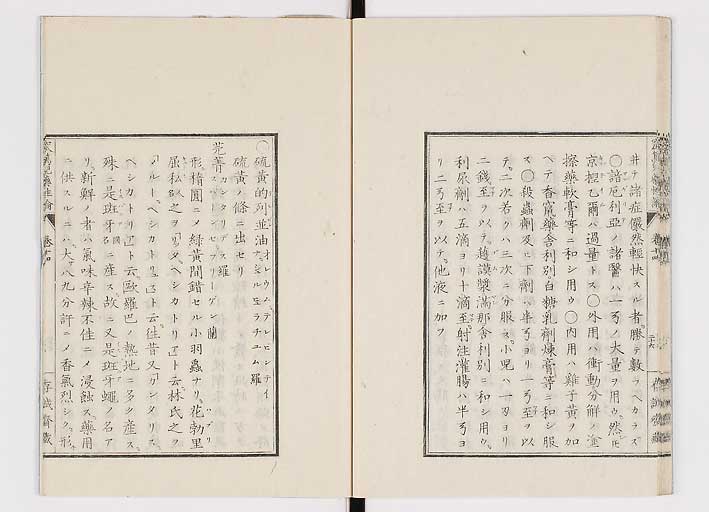 并テ諸症儼然輕快スル者勝テ數フヘカラズ
〇諳厄利亞ノ諸醫ハ一弓ノ大量ヲ用ウ然𪜈
京抠乙爾ハ過量トス〇外用ハ衝動分解ノ塗
擦藥軟膏等ニ和シ用ウ〇内用ハ雞子黄ヲ加
ヘテ杳竄藥舎利別白糖乳劑煉膏等ニ和シ服
ス〇殺蟲劑及ヒ下劑ハ半弓ヨリ一弓至ヲ以
テ二次若クハ三次ニ分服ス小兒ハ一刃ヨリ
二錢至ヲ以テ越謨漿滿那舎利別ニ和シ用ウ
利尿劑ハ五滴ヨリ十滴至射注灌腸ハ半弓ヨ
リ二弓至ヲ以テ他液ニ加フ
二十六
〇硫黄的列並油
硫黄ノ條ニ出セリ
芫菁 カンタリデス 羅 スパーンセフリーゲン 蘭
形橢圓ニノ緑黄間錯セル小羽蟲ナリ花勃里
屈私名之ヲリタヘシカトリトト云林氏之ヲ
メルーヘシカトリトト云往昔又カンタリス
ヘシカトリトト云歐羅巴ノ熱地ニ多ク産ス
殊ニ是班牙國名ニ産ス故ニ又是班牙蠅ノ名ア
リ新鮮ノ者ハ氣味辛辣不佳ニノ浸蝕ス藥用
ニ供スルニハ大サ八九分許ニノ香氣烈シク形
存誠齋藏